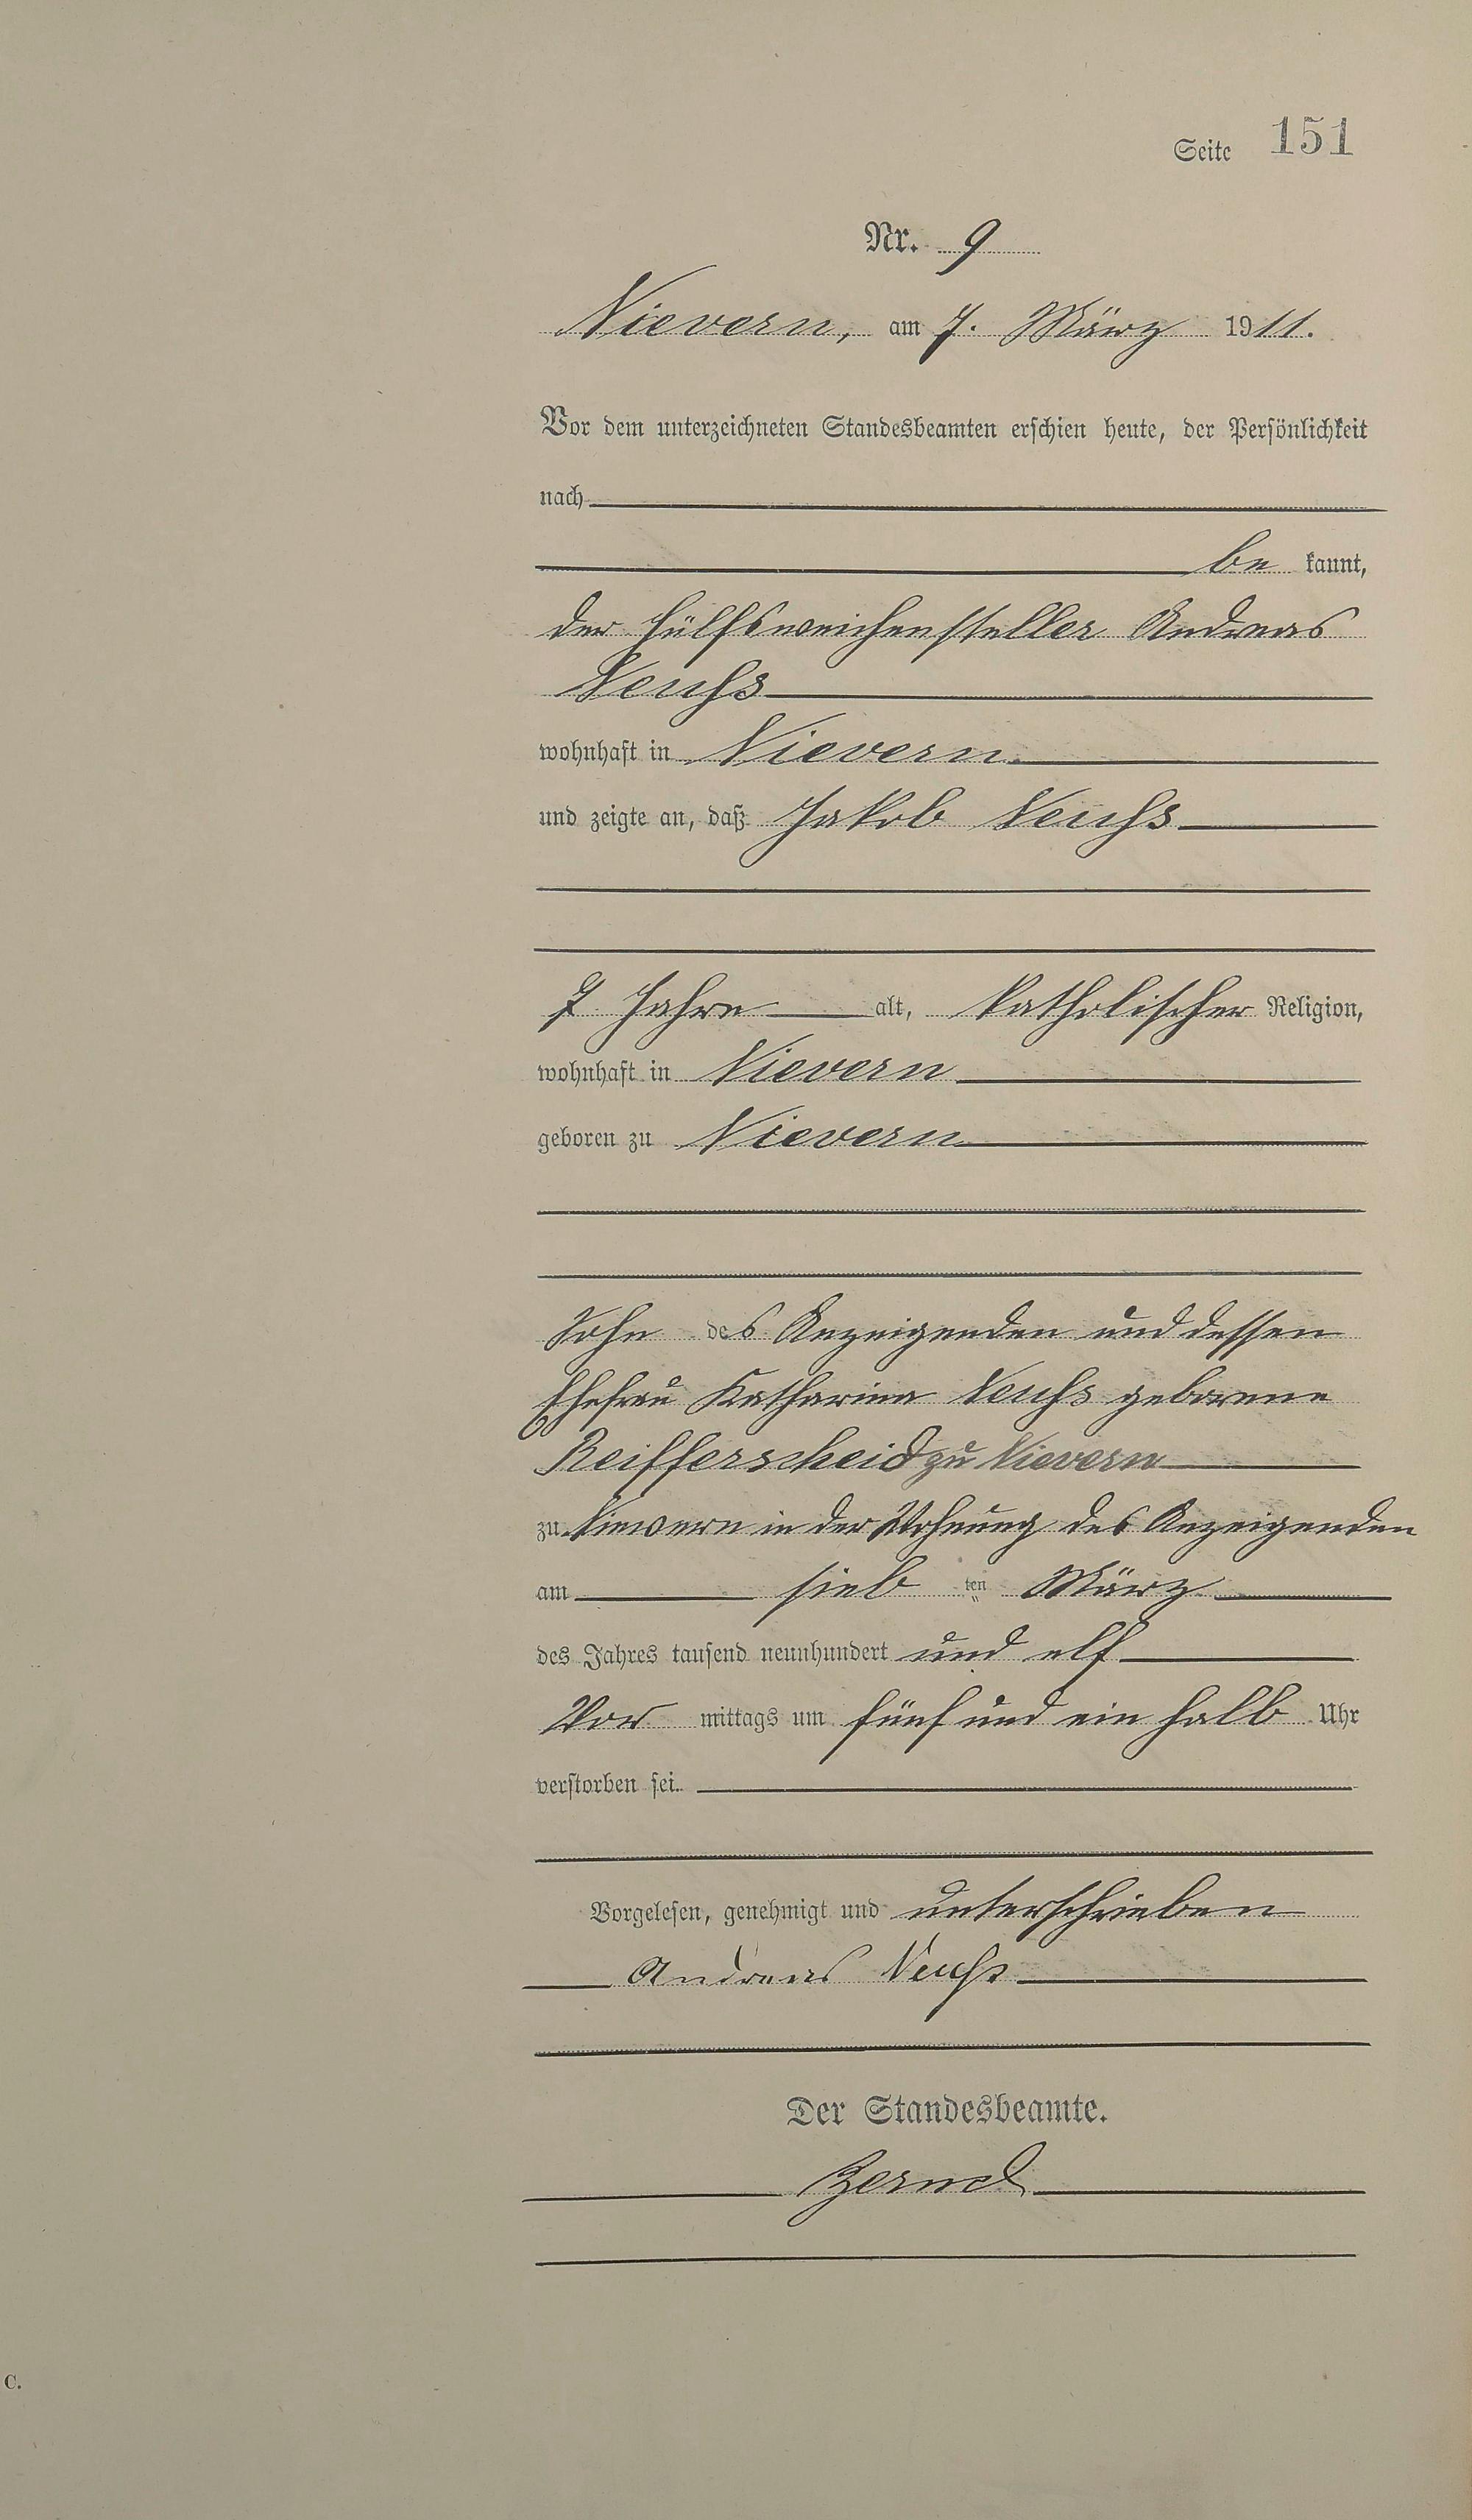 Seite 151
Nr. 9
Nievern, am 7. März 1911.
Vor dem unterzeichneten Standesbeamten erschien heute, der Persönlichkeit
nach
be kannt,
der Hülfsweichensteller Andreas
Neuhs
wohnhaft in Nievern
und zeigte an, daß Jakob Neuhs
7 Jahre alt, katholischer Religion,
wohnhaft in Nievern
geboren zu Nievern
Sohn des Anzeigenden und dessen
Ehefrau Katharina Neuhs geborene
Reifferscheid zu Nievern
zu Nievern in der Wohnung des Anzeigenden
am sieb ten März
des Jahres tausend neunhundert und elf
Vor mittags um fünf und ein halb Uhr
verstorben sei.
Vorgelesen, genehmigt und unterschrieben
Andreas Neuhs
Der Standesbeamte.
C.